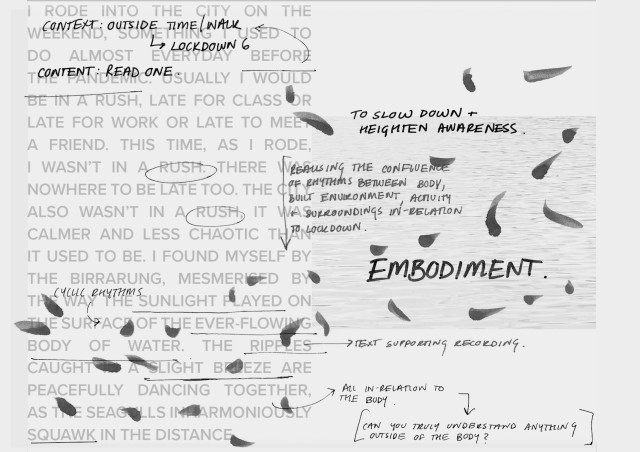 I RODE INTO THE CITY ON THE
WEEKEND, SOMETHING I USED TO
DO ALMOST EVERYDAY BEFORE
THE PANDEMIC. USUALLY I WOULD
BE IN A RUSH, LATE FOR CLASS OR
LATE FOR WORK OR LATE TO MEET
A FRIEND. THIS TIME, AS I RODE,
I WASN'T IN A RUSH, THERE WAS
NOWHERE TO BE LATE TOO. THE CITY
ALSO WASN'T IN A RUSH, IT WAS
CALMER AND LESS CHAOTIC THAN
IT USED TO BE. I FOUND MYSELF BY
THE BIRRARUNG, MESMERISED BY
THE WAY THE SUNLIGHT PLAYED ON
THE SURFACE OF THE EVER-FLOWING
BODY OF WATER. THE RIPPLES
CAUGHT IN A SLIGHT BREEZE ARE
PEACEFULLY DANCING TOGETHER,
AS THE SEAGULLS INHARMONIOUSLY
SQUAWK IN THE DISTANCE
CONTEXT: OUTSIDE TIME/WALK
LOCKDOWN 6
CONTENT: READ ONE.
CYCLIC RHYTHMS
TO SLOW DOWN +
HEIGHTEN AWARENESS.
REALISING THE CONFLUENCE
OF RHYTHMS BETWEEN BODY,
BUILT ENVIRONMENT, ACTIVITY
+ SURROUNDINGS IN-RELATION
TO LOCKDOWN.
EMBODIMENT.
TEXT SUPPORTING RECORDING.
ALL IN-RELATION TO
THE BODY.
[CAN YOU TRULY UNDERSTAND ANYTHING
OUTSIDE OF THE BODY?]